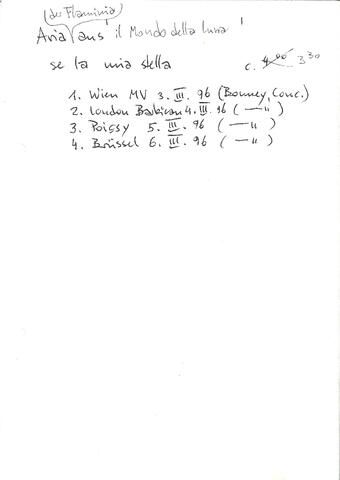 (der Flaminia)
Aria aus 'il Mondo della luna'
se la mia stella
c. 4⁰⁰ 3³⁰
1. Wien MV 3. III. 96 (Bonney, Conc.)
2. London Barbican 4. III. 96 ( — " )
3. Poissy 5. III. 96 ( — " )
4. Brüssel 6. III. 96 ( — " )